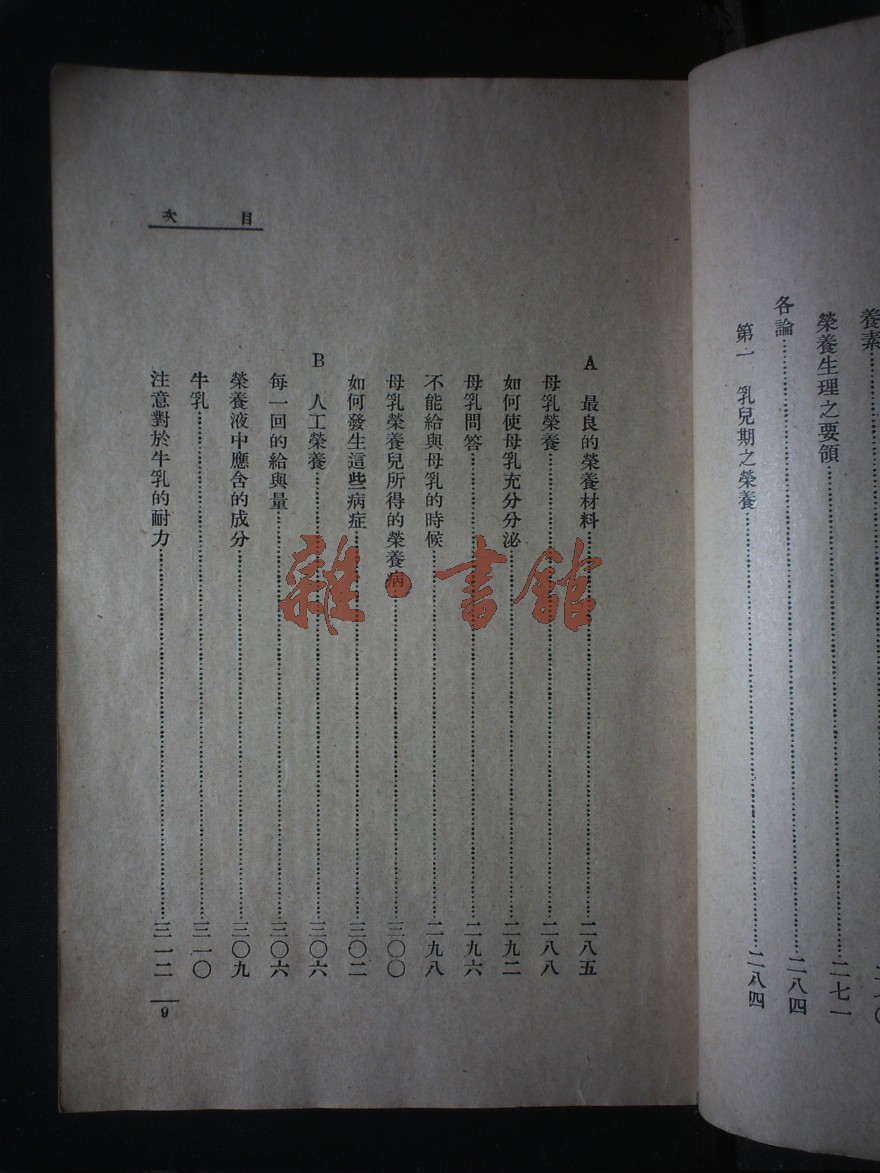 養素
榮養生理之要領……二七一
各論……二八四
第一 乳兒期之榮養……二八四
目次
A 最良的榮養材料……二八五
母乳榮養……二八八
如何使母乳充分分泌……二九二
母乳問答……二九六
不能給與母乳的時候……二九八
母乳榮養兒所得的榮養病……三〇〇
如何發生這些病症……三〇二
B 人工榮養……三〇六
每一回的給與量……三〇六
榮養液中應含的成分……三〇九
牛乳……三一〇
注意對於牛乳的耐力……三一二
9
雜·書館